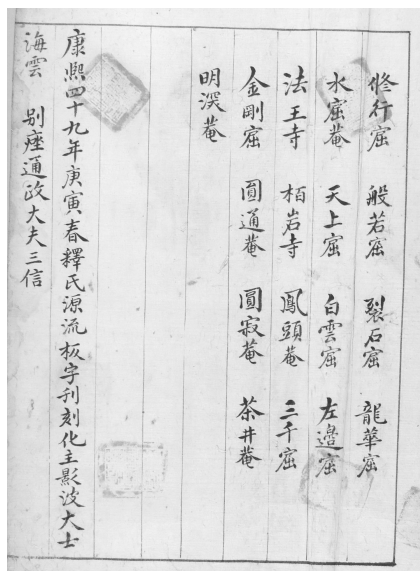 修行窟 般若窟 裂石窟 龍華窟
水窟菴 天上窟 白雲窟 左邊窟
法王寺 栢岩寺 鳳頭菴 三千窟
金剛窟 圓通菴 圓寂菴 茶井菴
明溪菴
康熙四十九年庚寅春釋氏源流板字刊刻化主影波大士
海雲 別座通政大夫三信